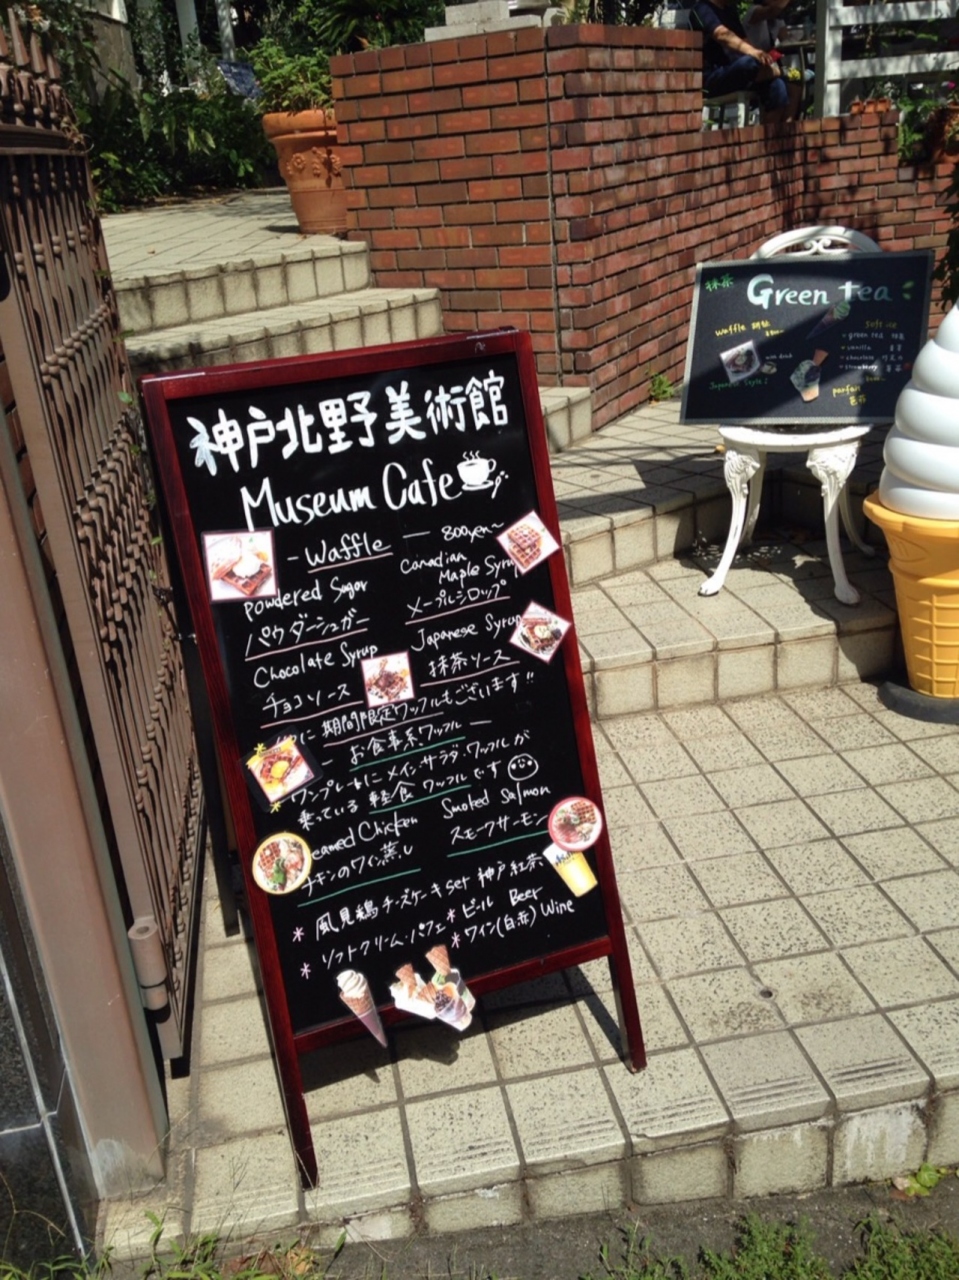 神戸北野美術館
Museum Cafe
- Waffle — 800yen~
Powdered Sugar
パウダーシュガー
Canadian
Maple Syrup
メープルシロップ
Chocolate Syrup
チョコソース
Japanese Syrup
抹茶ソース
に期間限定ワッフルもございます!!
- お食事系ワッフル -
ワンプレートにメイン・サラダ・ワッフルが
乗っている 軽食 ワッフルです
eamed Chicken
チキンのワイン蒸し
Smoked Salmon
スモークサーモン
* 風見鶏チーズケーキset 神戸紅茶
* ソフトクリーム・パフェ
* ビール Beer
* ワイン(白・赤) Wine
抹茶 Green tea
Waffle
Soft ice
- green tea 抹茶
- vanilla
- chocolate
- strawberry
Japanese Style!
parfait